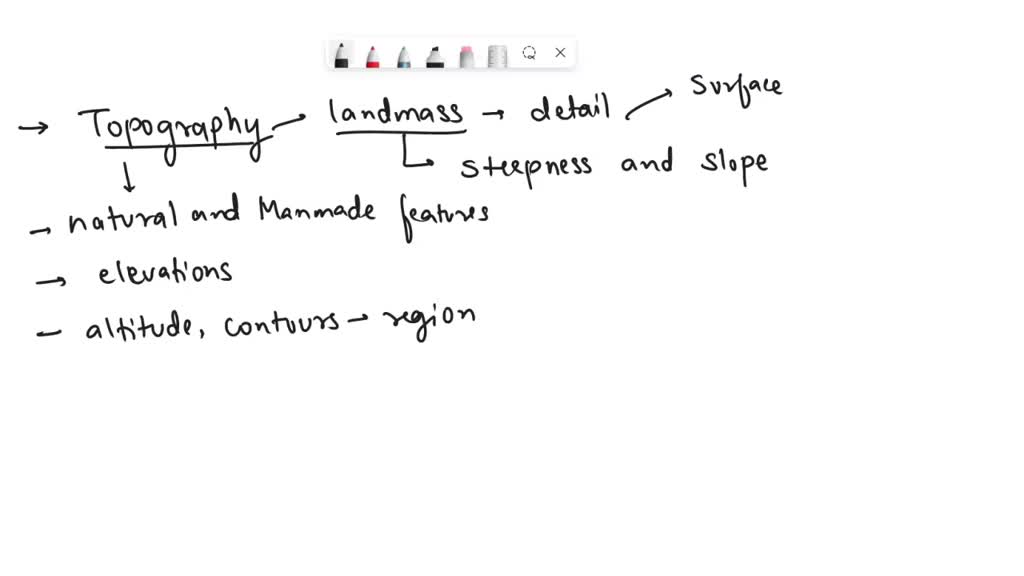 → Topography — landmass → detail → Surface
↳ steepness and slope
→ natural and Manmade features
→ elevations
– altitude, contours → region